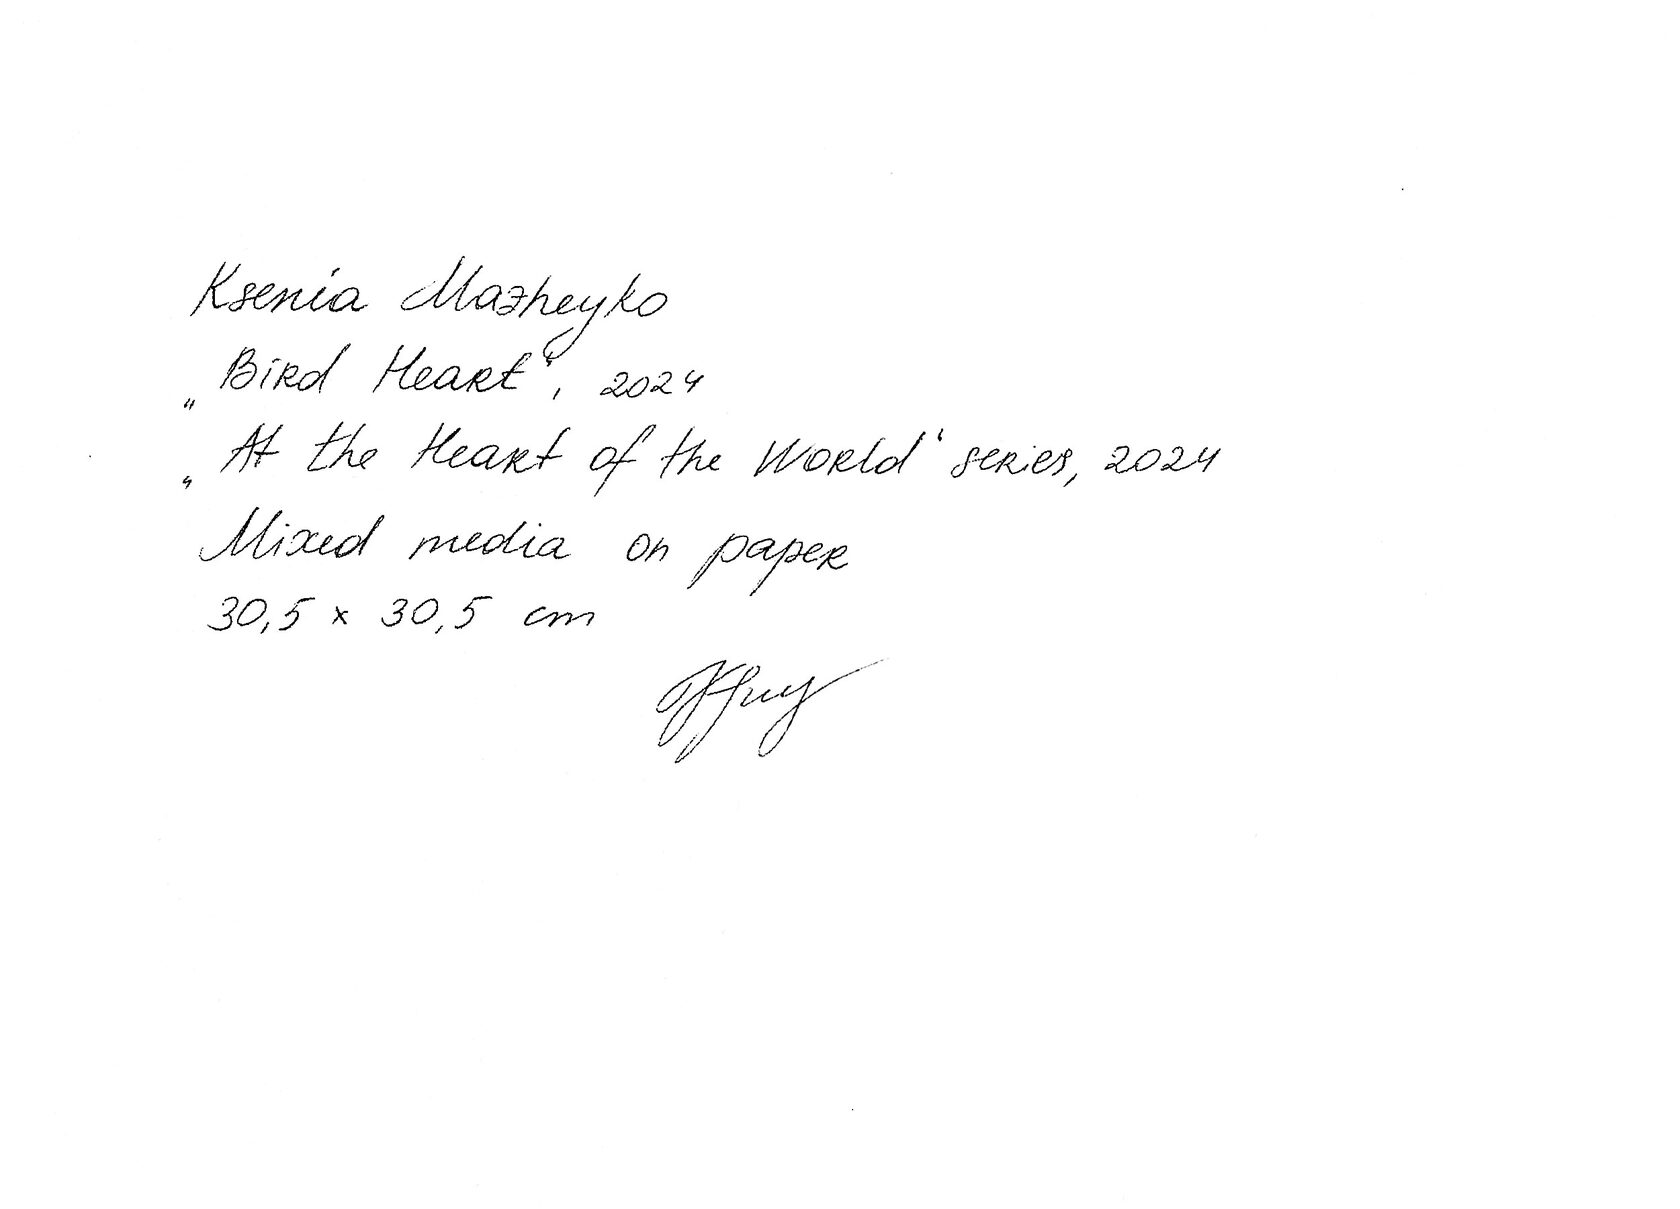 Ksenia Mazheyko
„Bird Heart“, 2024
„At the Heart of the World“ series, 2024
Mixed media on paper
30,5 x 30,5 cm